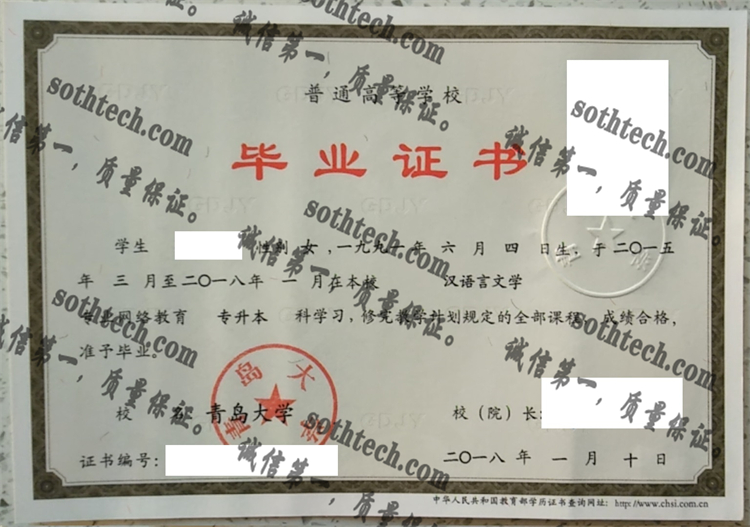 普通高等学校
毕业证书
学生 性别 女，一九九一年 六 月 四 日生，于二〇一五
年 三 月至二〇一八年 一 月在本校 汉语言文学
专业网络教育 专升本 科学习，修完教学计划规定的全部课程，成绩合格，
准予毕业。
校 名：青岛大学 校（院）长：
青岛大学
证书编号： 二〇一八年 一 月 十 日
中华人民共和国教育部学历证书查询网址：http://www.chsi.com.cn
sothtech.com
诚信第一，质量保证。
sothtech.com
诚信第一，质量保证。
sothtech.com
诚信第一，质量保证。
sothtech.com
诚信第一，质量保证。
sothtech.com
诚信第一，质量保证。
sothtech.com
诚信第一，质量保证。
sothtech.com
诚信第一，质量保证。
sothtech.com
诚信第一，质量保证。
sothtech.com